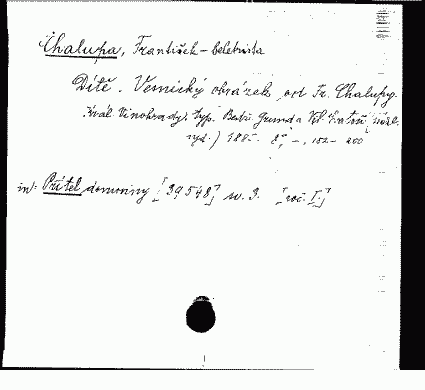 Chalupa, František – beletrista
Dítě. Vesnický obrázek od Fr. Chalupy.
Král. Vinohrady, typ. Bedř. Grund a
vyd.) 188 8°, –, 152 – 200
in: Přítel domoviny [39548] w. 3. [roč. I.]